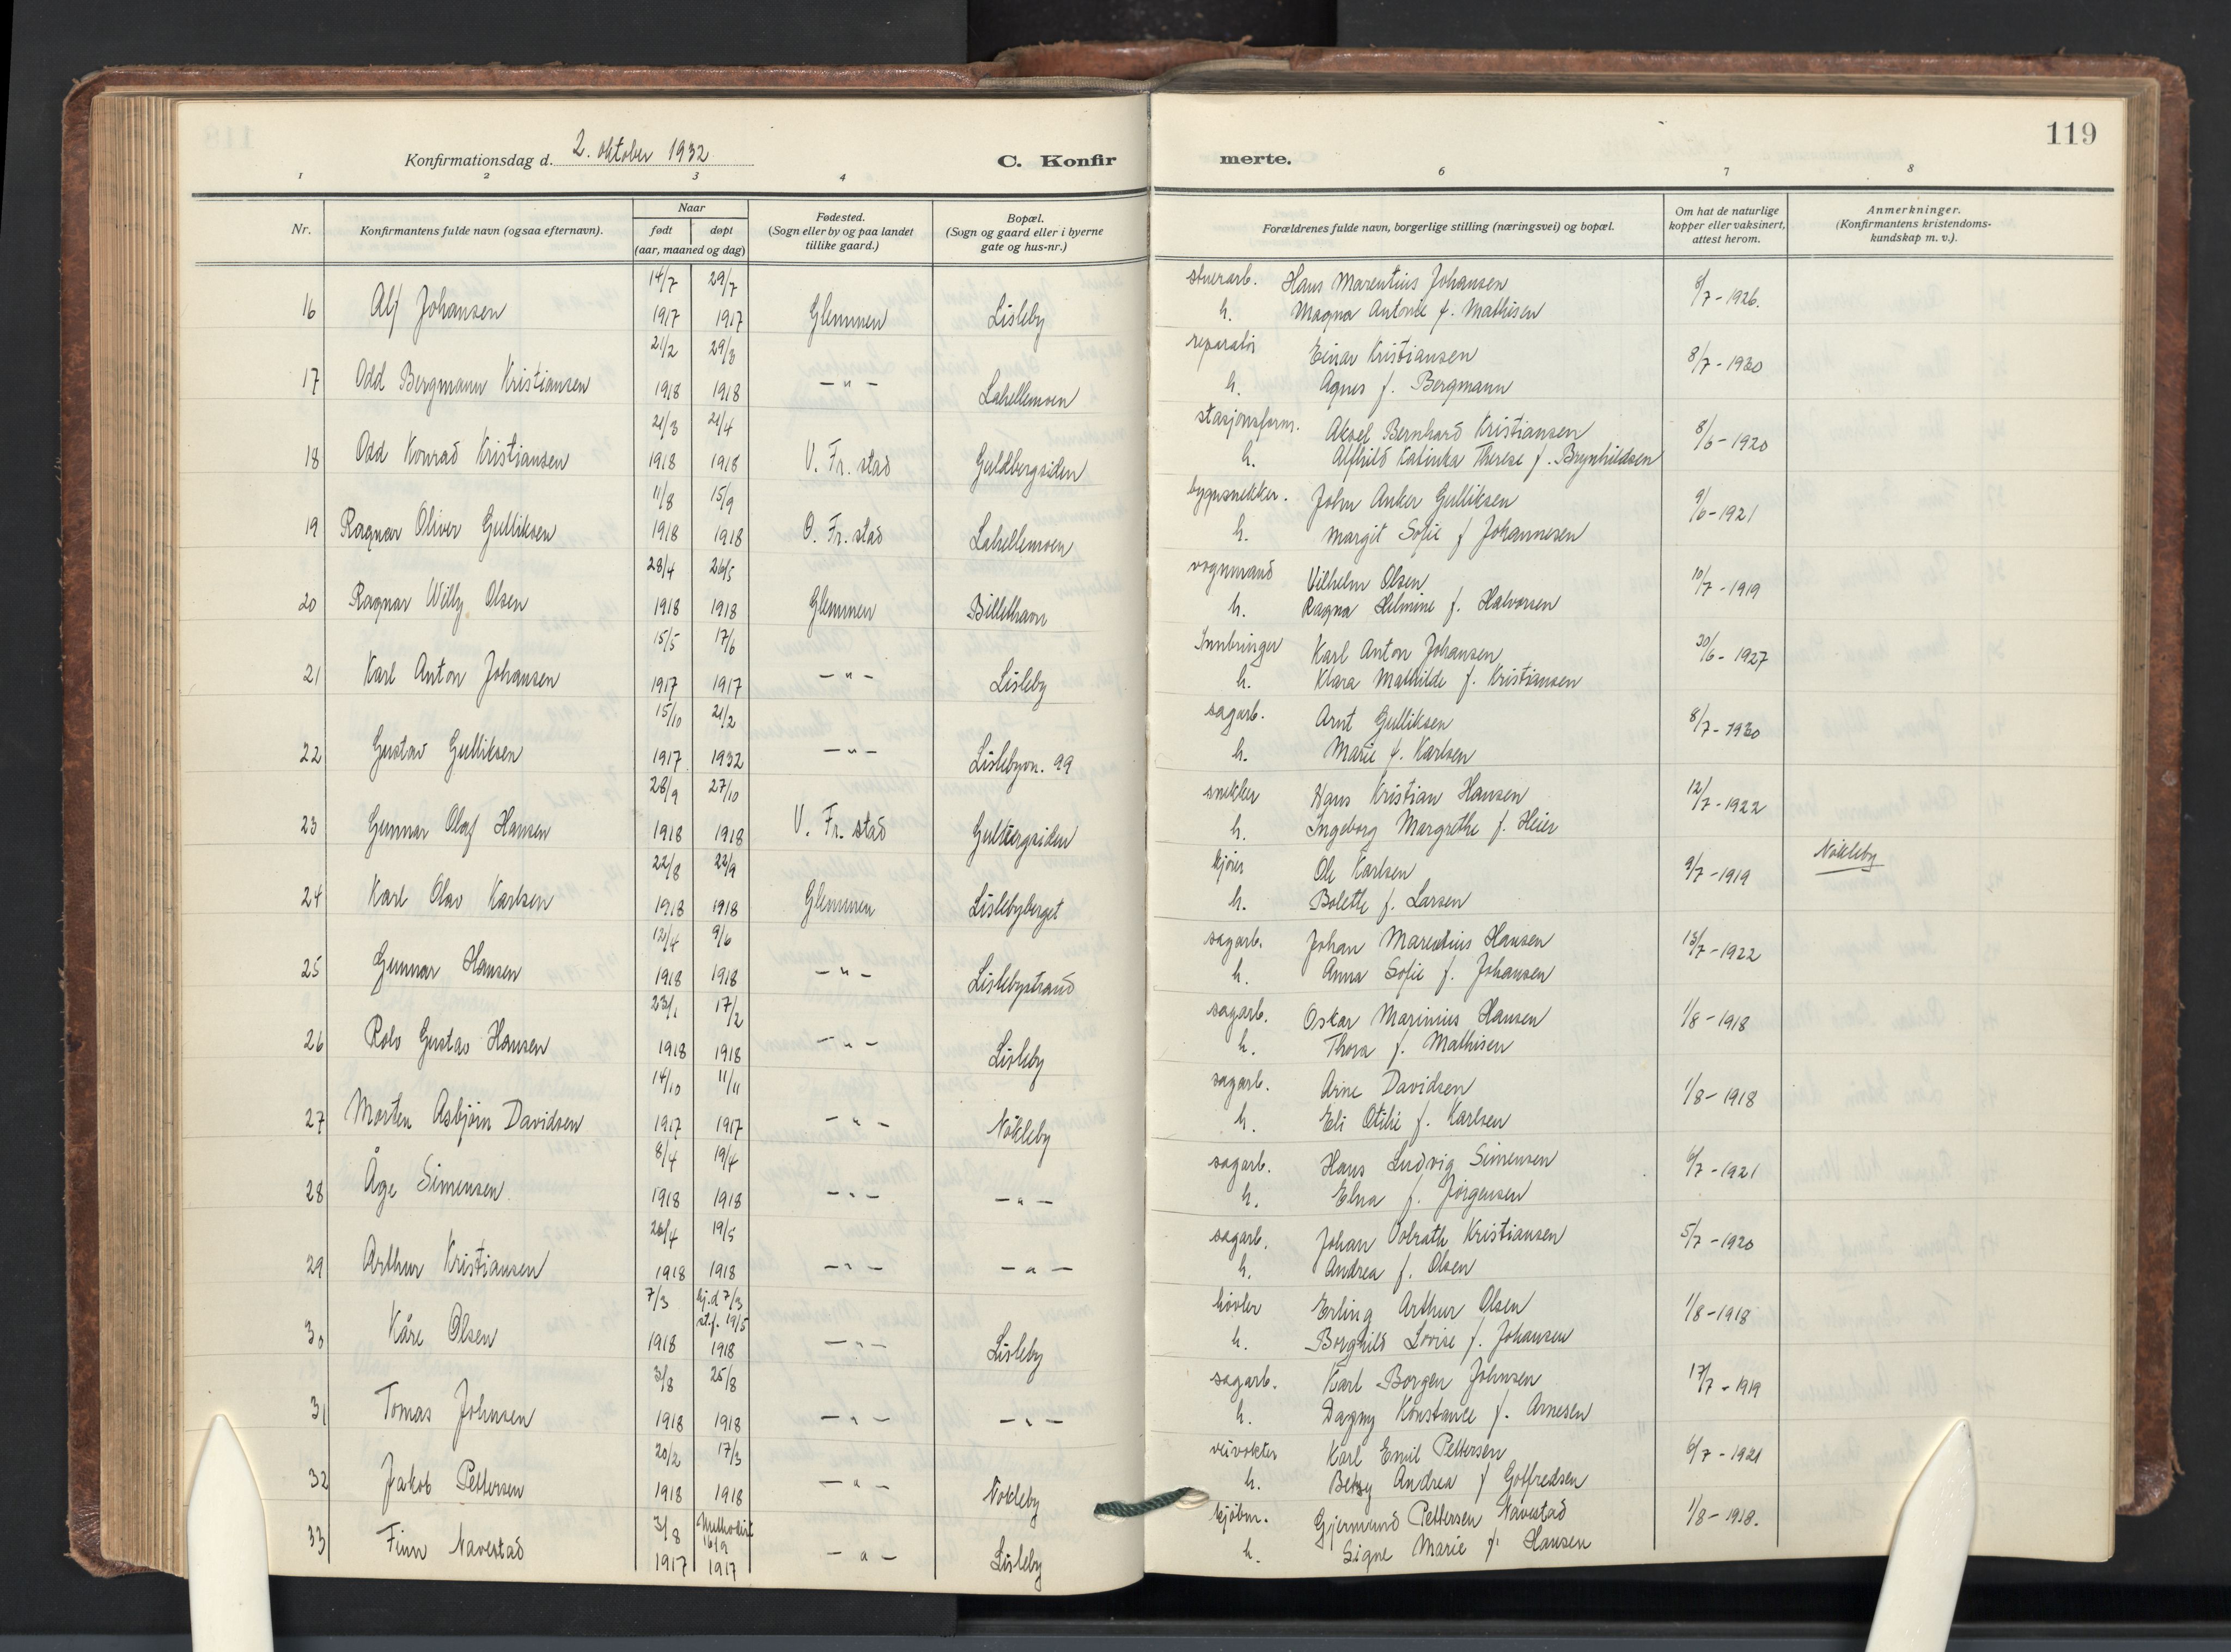 119
Konfirmationsdag d. 2. oktober 1932 C. Konfirmerte.
1 2 3 4 6 7 8
Nr. Konfirmantens fulde navn (ogsaa efternavn). Naar født døpt (aar, maaned og dag) Fødested. (Sogn eller by og paa landet tillike gaard.) Bopæl. (Sogn og gaard eller i byerne gate og hus-nr.) Forældrenes fulde navn, borgerlige stilling (næringsvei) og bopæl. Om hat de naturlige kopper eller vaksinert, attest herom. Anmerkninger. (Konfirmantens kristendomskundskap m. v.).
14/7 29/7 stuerarb. Hans Marentius Johansen 8/7-1926.
16 Alf Johansen 1917 1917 Glemmen Lisleby h. Magna Antonie f. Mathisen
21/2 29/3 reparatør Einar Kristiansen 8/7-1930
17 Odd Bergmann Kristiansen 1918 1918 -"- Lahellemoen h. Agnes f. Bergmann
21/3 21/4 stasjonsform. Aksel Bernhard Kristiansen 8/6-1920
18 Odd Konrad Kristiansen 1918 1918 V. Fr.stad Guldbergsiden h. Alfhild Katinka Therese f. Brynhildsen
11/8 15/9 bygnsnekker. John Anker Gulliksen 9/6-1921
19 Ragnar Oliver Gulliksen 1918 1918 O. Fr.stad Lahellemoen h. Margit Sofie f Johannesen
28/4 26/5 vognmand Vilhelm Olsen 10/7-1919
20 Ragnar Willy Olsen 1918 1918 Glemmen Billethavn h. Ragna Helmine f. Halvorsen
15/5 17/6 Innbringer Karl Anton Johansen 30/6-1927
21 Karl Anton Johansen 1917 1917 -"- Lisleby h. Klara Mathilde f. Kristiansen
15/10 21/2 sagarb. Arnt Gulliksen 8/7-1930
22 Gustav Gulliksen 1917 1932 -"- Lislebyvn. 99 h. Marie f. Karlsen
28/9 27/10 snekker Hans Kristian Hansen 12/7-1922
23 Gunnar Olaf Hansen 1918 1918 V. Fr.stad Gulbergsiden h. Ingeborg Margrethe f. Heier
22/8 22/9 kjører Ole Karlsen 9/7-1919 Nökleby
24 Karl Olav Karlsen 1918 1918 Glemmen Lislebyberget h. Bolette f. Larsen
12/4 9/6 sagarb. Johan Marentius Hansen 13/7-1922
25 Gunnar Hansen 1918 1918 -"- Lislebystrand h. Anna Sofie f. Johansen
23/1 17/2 sagarb. Oskar Marinius Hansen 1/8-1918
26 Rolv Gustav Hansen 1918 1918 -"- Lisleby h. Thora f. Mathisen
14/10 11/11 sagarb. Arne Davidsen 1/8-1918
27 Morten Asbjörn Davidsen 1917 1917 -"- Nökleby h. Eli Otilie f. Karlsen
8/4 19/4 sagarb. Hans Ludvig Simensen 6/7-1921
28 Åge Simensen 1918 1918 -"- -"- h. Elna f. Jørgensen
20/4 19/5 sagarb. Johan Volrath Kristiansen 5/7-1920
29 Arthur Kristiansen 1918 1918 -"- -"- h. Andrea f. Olsen
7/3 hj.d 7/3 st.f. 19/5 høvler Erling Arthur Olsen 1/8-1918
30 Kåre Olsen 1918 1918 -"- Lisleby h. Borghild Lovise f. Johansen
3/8 25/8 sagarb. Karl Borgen Johnsen 17/7-1919
31 Tomas Johnsen 1918 1918 -"- -"- h. Dagny Konstanse f. Arnesen
20/2 17/3 veivokter Karl Emil Pettersen 6/7-1921
32 Jakob Pettersen 1918 1918 -"- Nökleby h. Betsy Andrea f Gotfredsen
3/8 Methodist 16/9 kjøbm. Gjermund Pettersen Navestad 1/8-1918.
33 Finn Navestad 1917 1917 -"- Lisleby h. Signe Marie f. Hansen